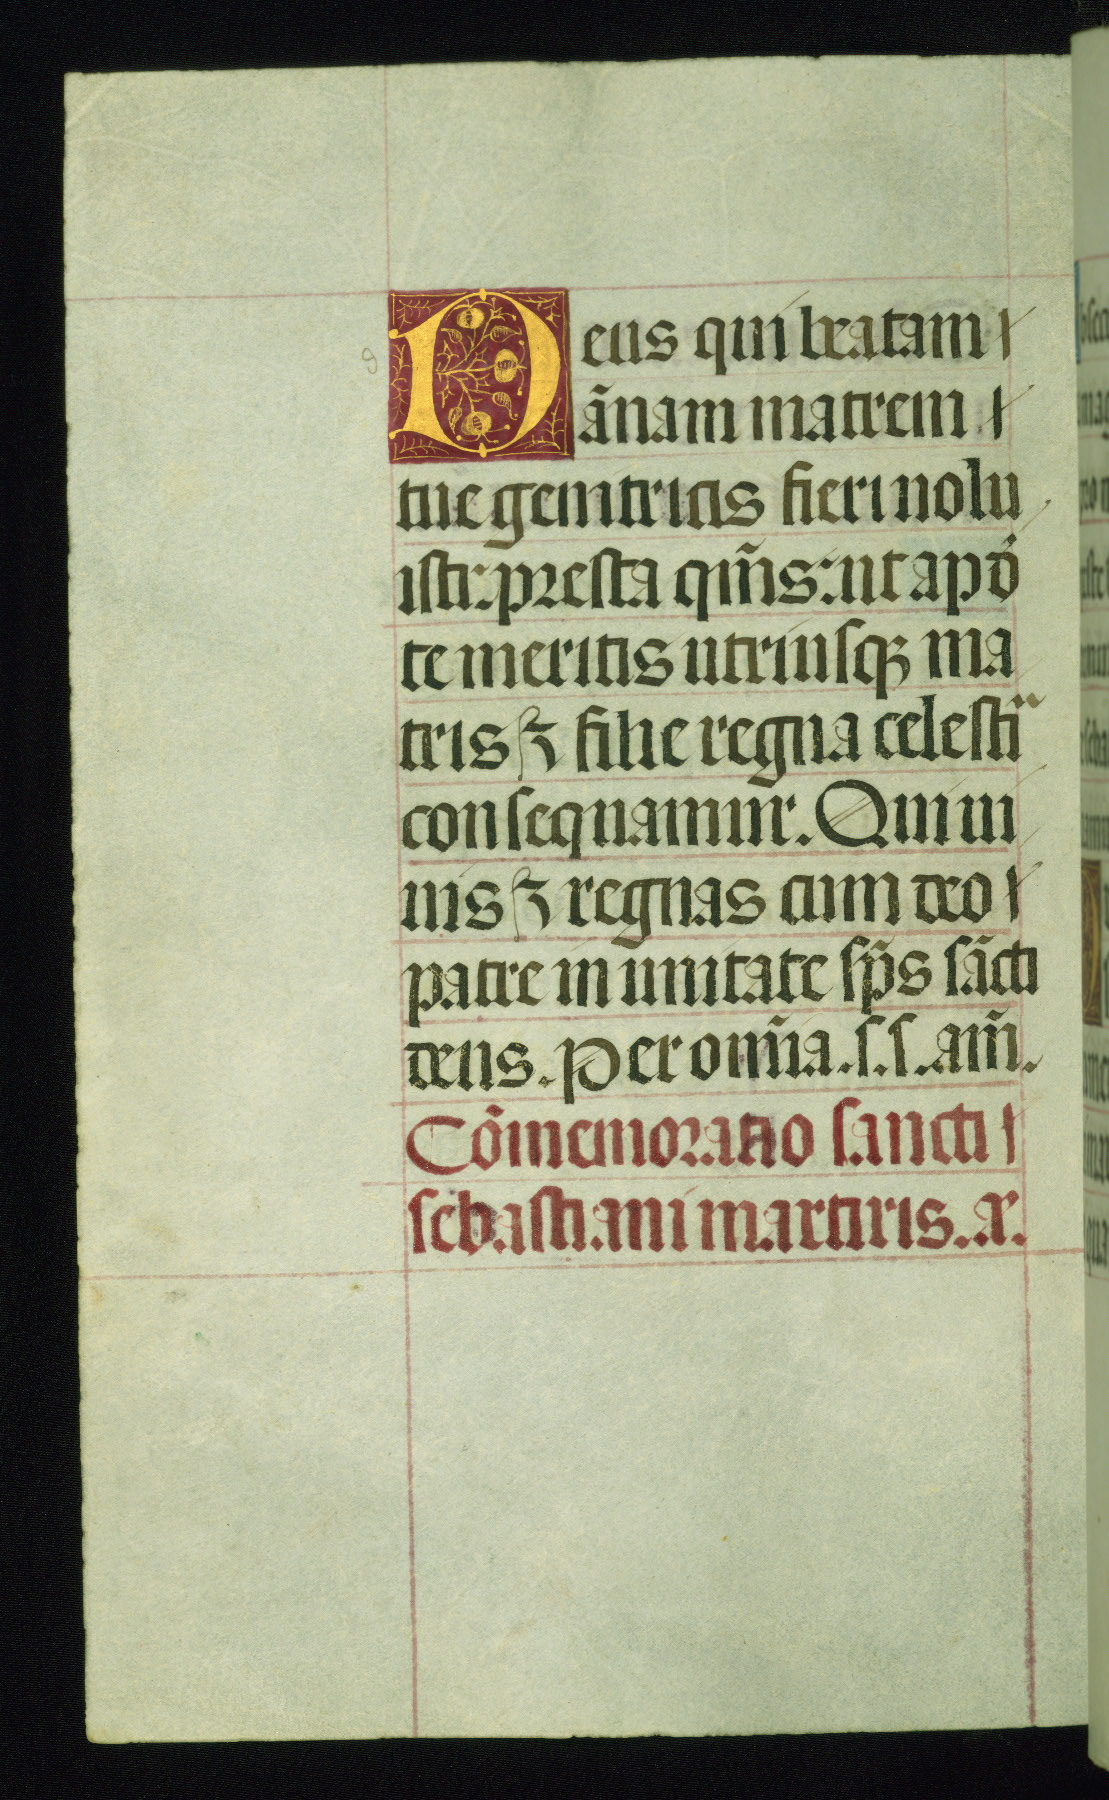 Deus qui beatam
ãnam matrem
tue genitricis fieri uolu
isti: presta qm̃s: ut apd̃
te meritis utriusqꝫ ma
tris ⁊ filie regna celesti¨
consequamur. Qui ui
uis ⁊ regnas cum deo
patre in unitate sp̃s sãcti
deus. Per om̃ia. s. s. am̃.
Cõmemoratio sancti
sebastiani martiris. ax.